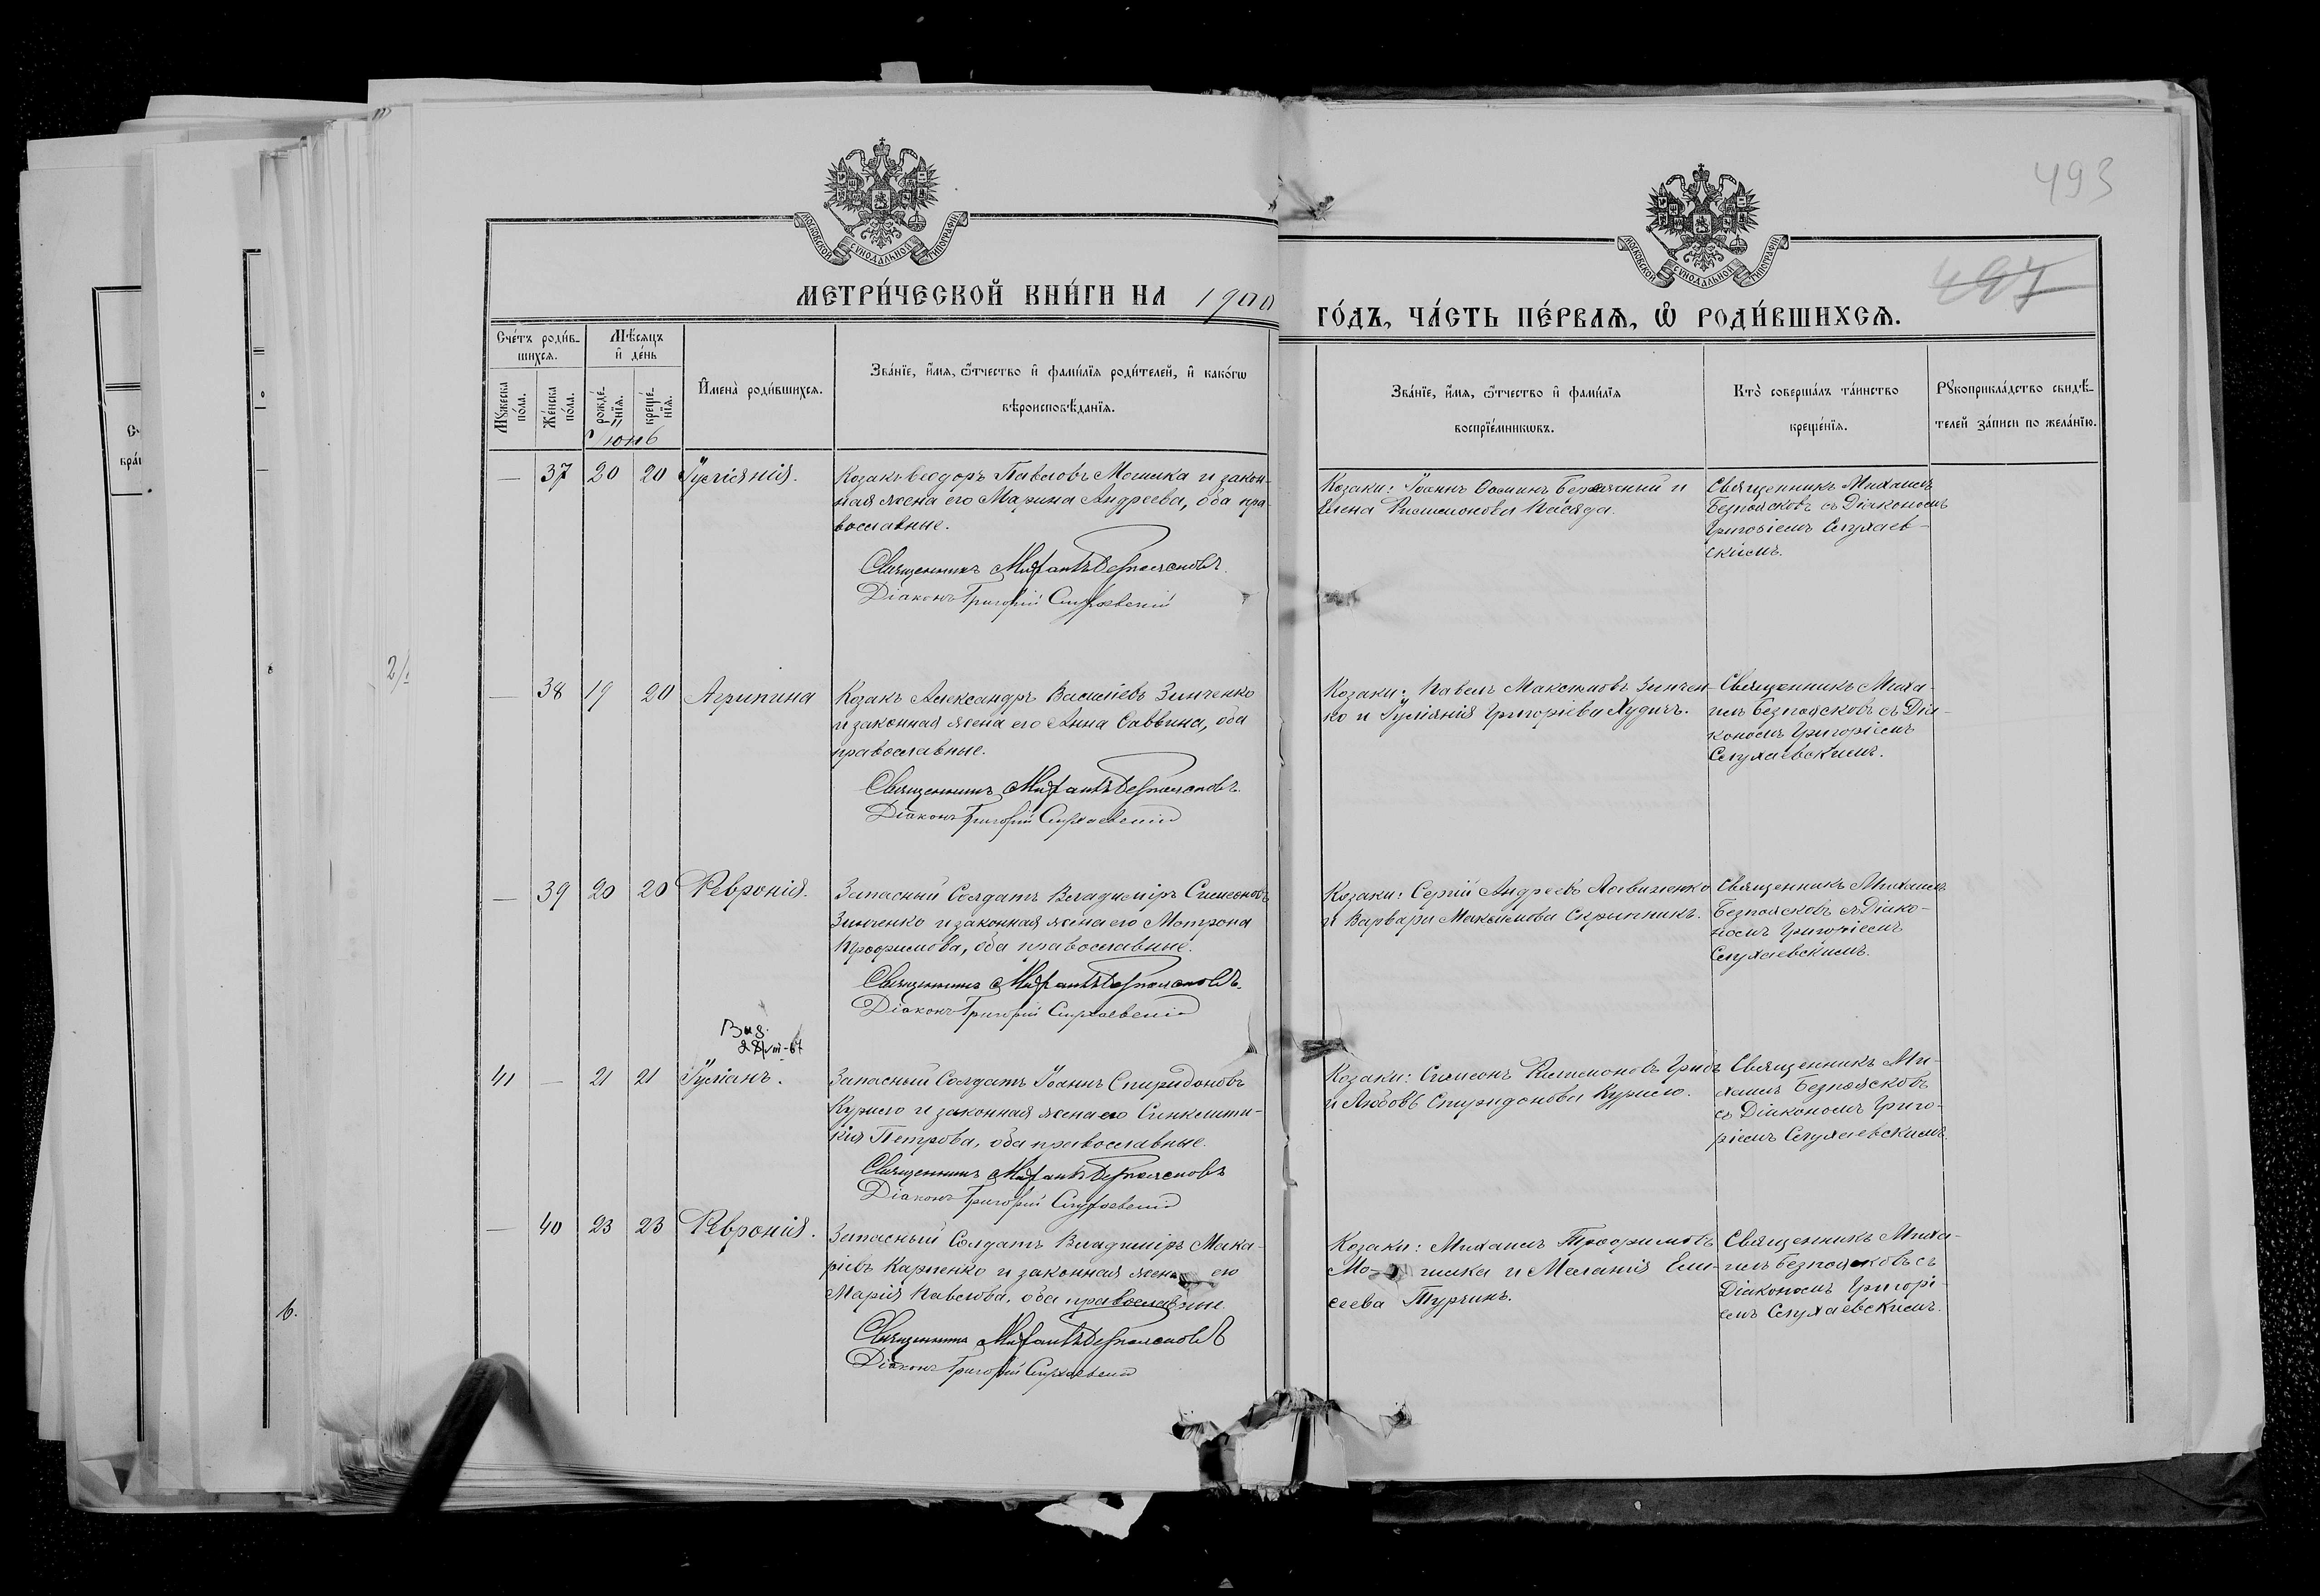 493
497
МОСКОВСКОЙ СѴНОДАЛЬНОЙ ТИПОГРАФІИ
МОСКОВСКОЙ СѴНОДАЛЬНОЙ ТИПОГРАФІИ
МЕТРИ́ЧЕСКОЙ КНИ́ГИ НА 1900
ГО́ДЪ, ЧА́СТЬ ПЕ́РВАѦ, Ѡ РОДИ́ВШИХСѦ.
Сче́тъ роди́в-
шихсѧ.
Мꙋжеска
по́ла.
Же́нска
по́ла.
Мѣ́сѧцъ
и҆ де́нь
рожде́-
нїѧ.
креще́-
нїѧ.
И҆мена̀ роди́вшихсѧ.
Зва́нїе, и҆́мѧ, ѻ҆́тчество и҆ фами́лїѧ роди́телей, и҆ како́гѡ
вѣроисповѣ́данїѧ.
Зва́нїе, и҆́мѧ, ѻ҆́тчество и҆ фами́лїѧ
воспрїе́мникѡвъ.
Кто̀ соверша́лъ та́инство
креще́нїѧ.
Рꙋкоприкла́дство свидѣ́-
телей за́писи по жела́нїю.
Іюнь
— 37 20 20 Іуліанія.
Козакъ Ѳеодоръ Павловъ Мошка и закон-
ная жена его Марина Андреева, оба пра-
вославные.
Священникъ Михаилъ Безпоясковъ.
Діаконъ Григорій Слухаевскій
Козаки: Іоаннъ Ѳоминъ
Елена
Священникъ Михаилъ
Безпоясковъ съ Діакономъ
Григоріемъ Слухаев-
скимъ.
— 38 19 20 Агрипина
Козакъ Александръ Василіевъ Зинченко
и законная жена его Анна Саввина, оба
православные.
Священникъ Михаилъ Безпоясковъ.
Діаконъ Григорій Слухаевскій
Козаки: Павелъ Максимовъ Зинчен-
ко и Іуліанія Григоріева Худичъ.
Священникъ Миха-
илъ Безпоясковъ съ Діа-
кономъ Григоріемъ
Слухаевскимъ.
— 39 20 20 Февронія.
Запасный Солдатъ Владиміръ Симеоновъ
Зинченко и законная жена его Мотрона
Трофимова, оба православные.
Священникъ Михаилъ Безпоясковъ.
Діаконъ Григорій Слухаевскій
Козаки: Сергій Андреевъ
и Варвара Максимова Скрипникъ.
Священникъ Михаилъ
Безпоясковъ съ Діако-
номъ Григоріемъ
Слухаевскимъ.
Выд.
28/VIII-67
41 — 21 21 Іуліанъ.
Запасный Солдатъ Іоаннъ Спиридоновъ
Курило и законная жена его Синклити-
кія Петрова, оба православные.
Священникъ Михаилъ Безпоясковъ
Діаконъ Григорій Слухаевскій
Козаки: Симеонъ Филимоновъ
и Любовь Спиридонова Курило.
Священникъ Ми-
хаилъ Безпоясковъ
съ Діакономъ Григо-
ріемъ Слухаевскимъ.
— 40 23 23 Февронія.
Запасный Солдатъ Владиміръ Мака-
ріевъ Карпенко и законная жена его
Марія Павлова, оба православные.
Священникъ Михаилъ Безпоясковъ
Діаконъ Григорій Слухаевскій
Козаки: Михаилъ Трофимовъ
Мо- шка и Меланія Ели-
сеева Турчинъ.
Священникъ Миха-
илъ Безпоясковъ съ
Діакономъ Григорі-
емъ Слухаевскимъ.